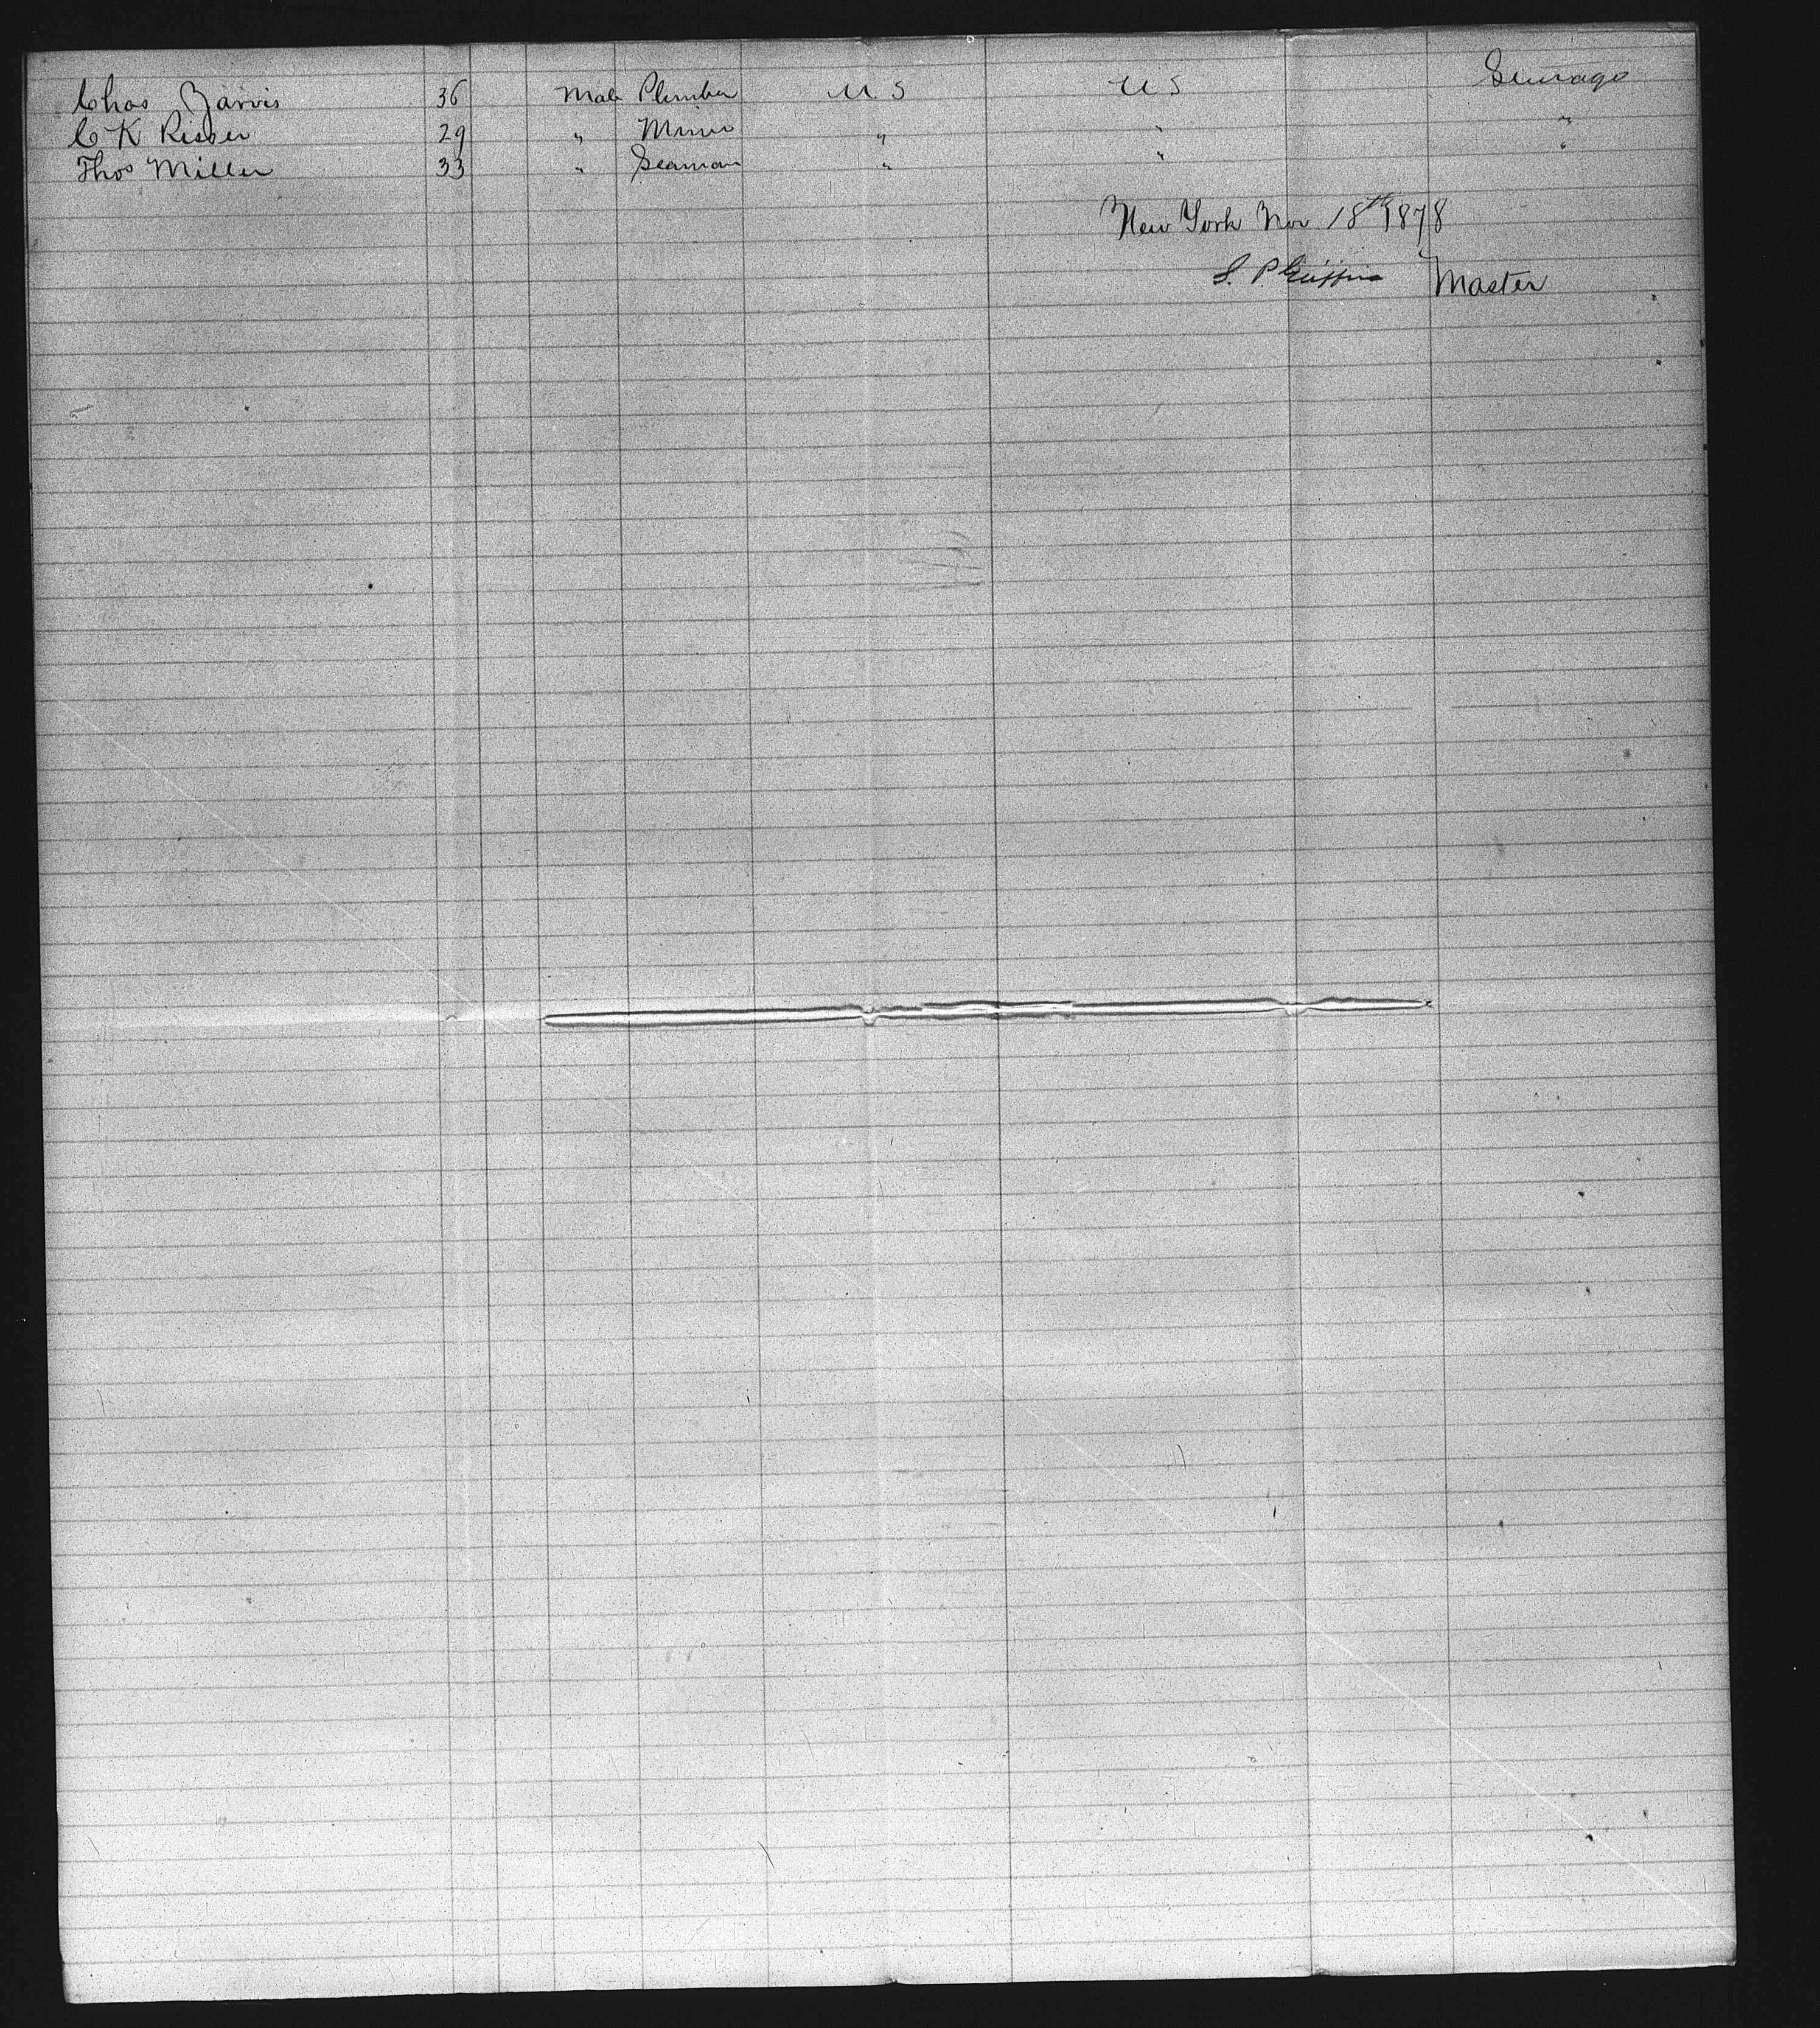 Chas Jarvis 36 Male Plumber U S U S Steerage
C K Risser 29 " Miner " " "
Thos Miller 33 " Seaman " " "
New York Nov 18th 1878
S. P. Griffin Master